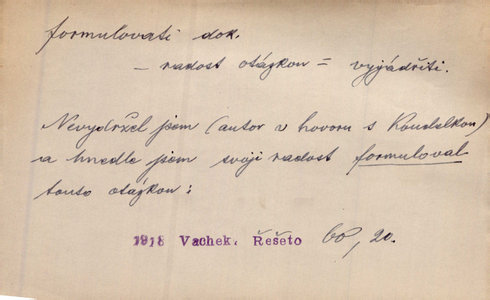 formulovati dok.
– radost otázkou = vyjádřiti.
Nevydržel jsem (autor v hovoru s Koudelkou)
a hnedle jsem svoji radost formuloval
touto otázkou:
1918 Vachek. Řešeto 60, 20.